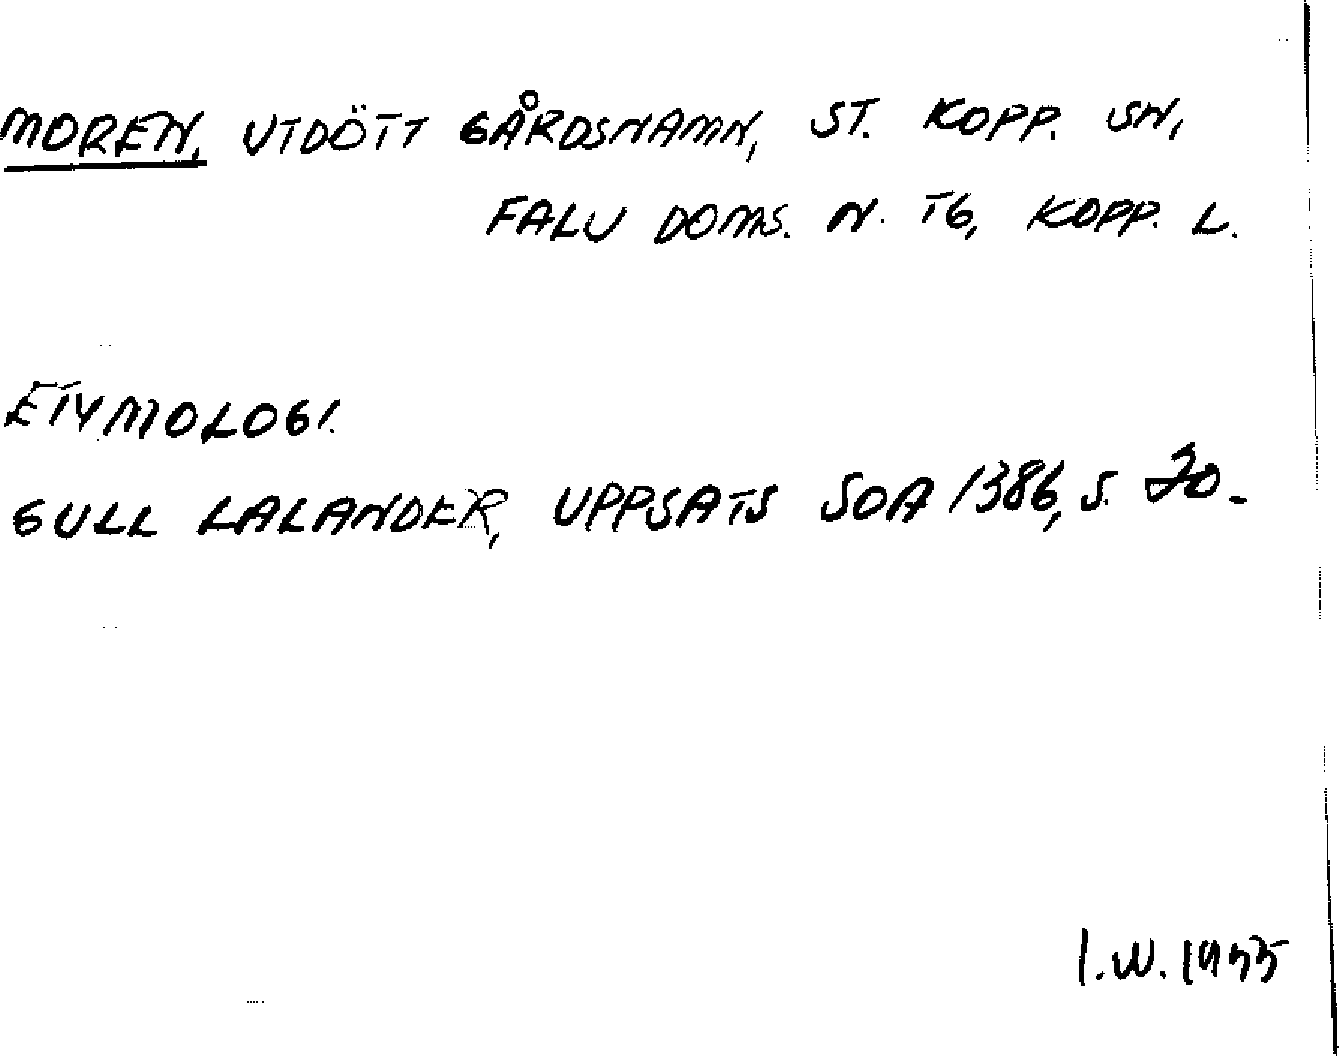 MOREN, UTDÖTT GÅRDSNAMN, ST. KOPP. SN,
FALU DOMS. N. TG, KOPP. L.
ETYMOLOGI.
GULL LALANDER, UPPSATS SOA 1386, S. 20.
I.W. 1955